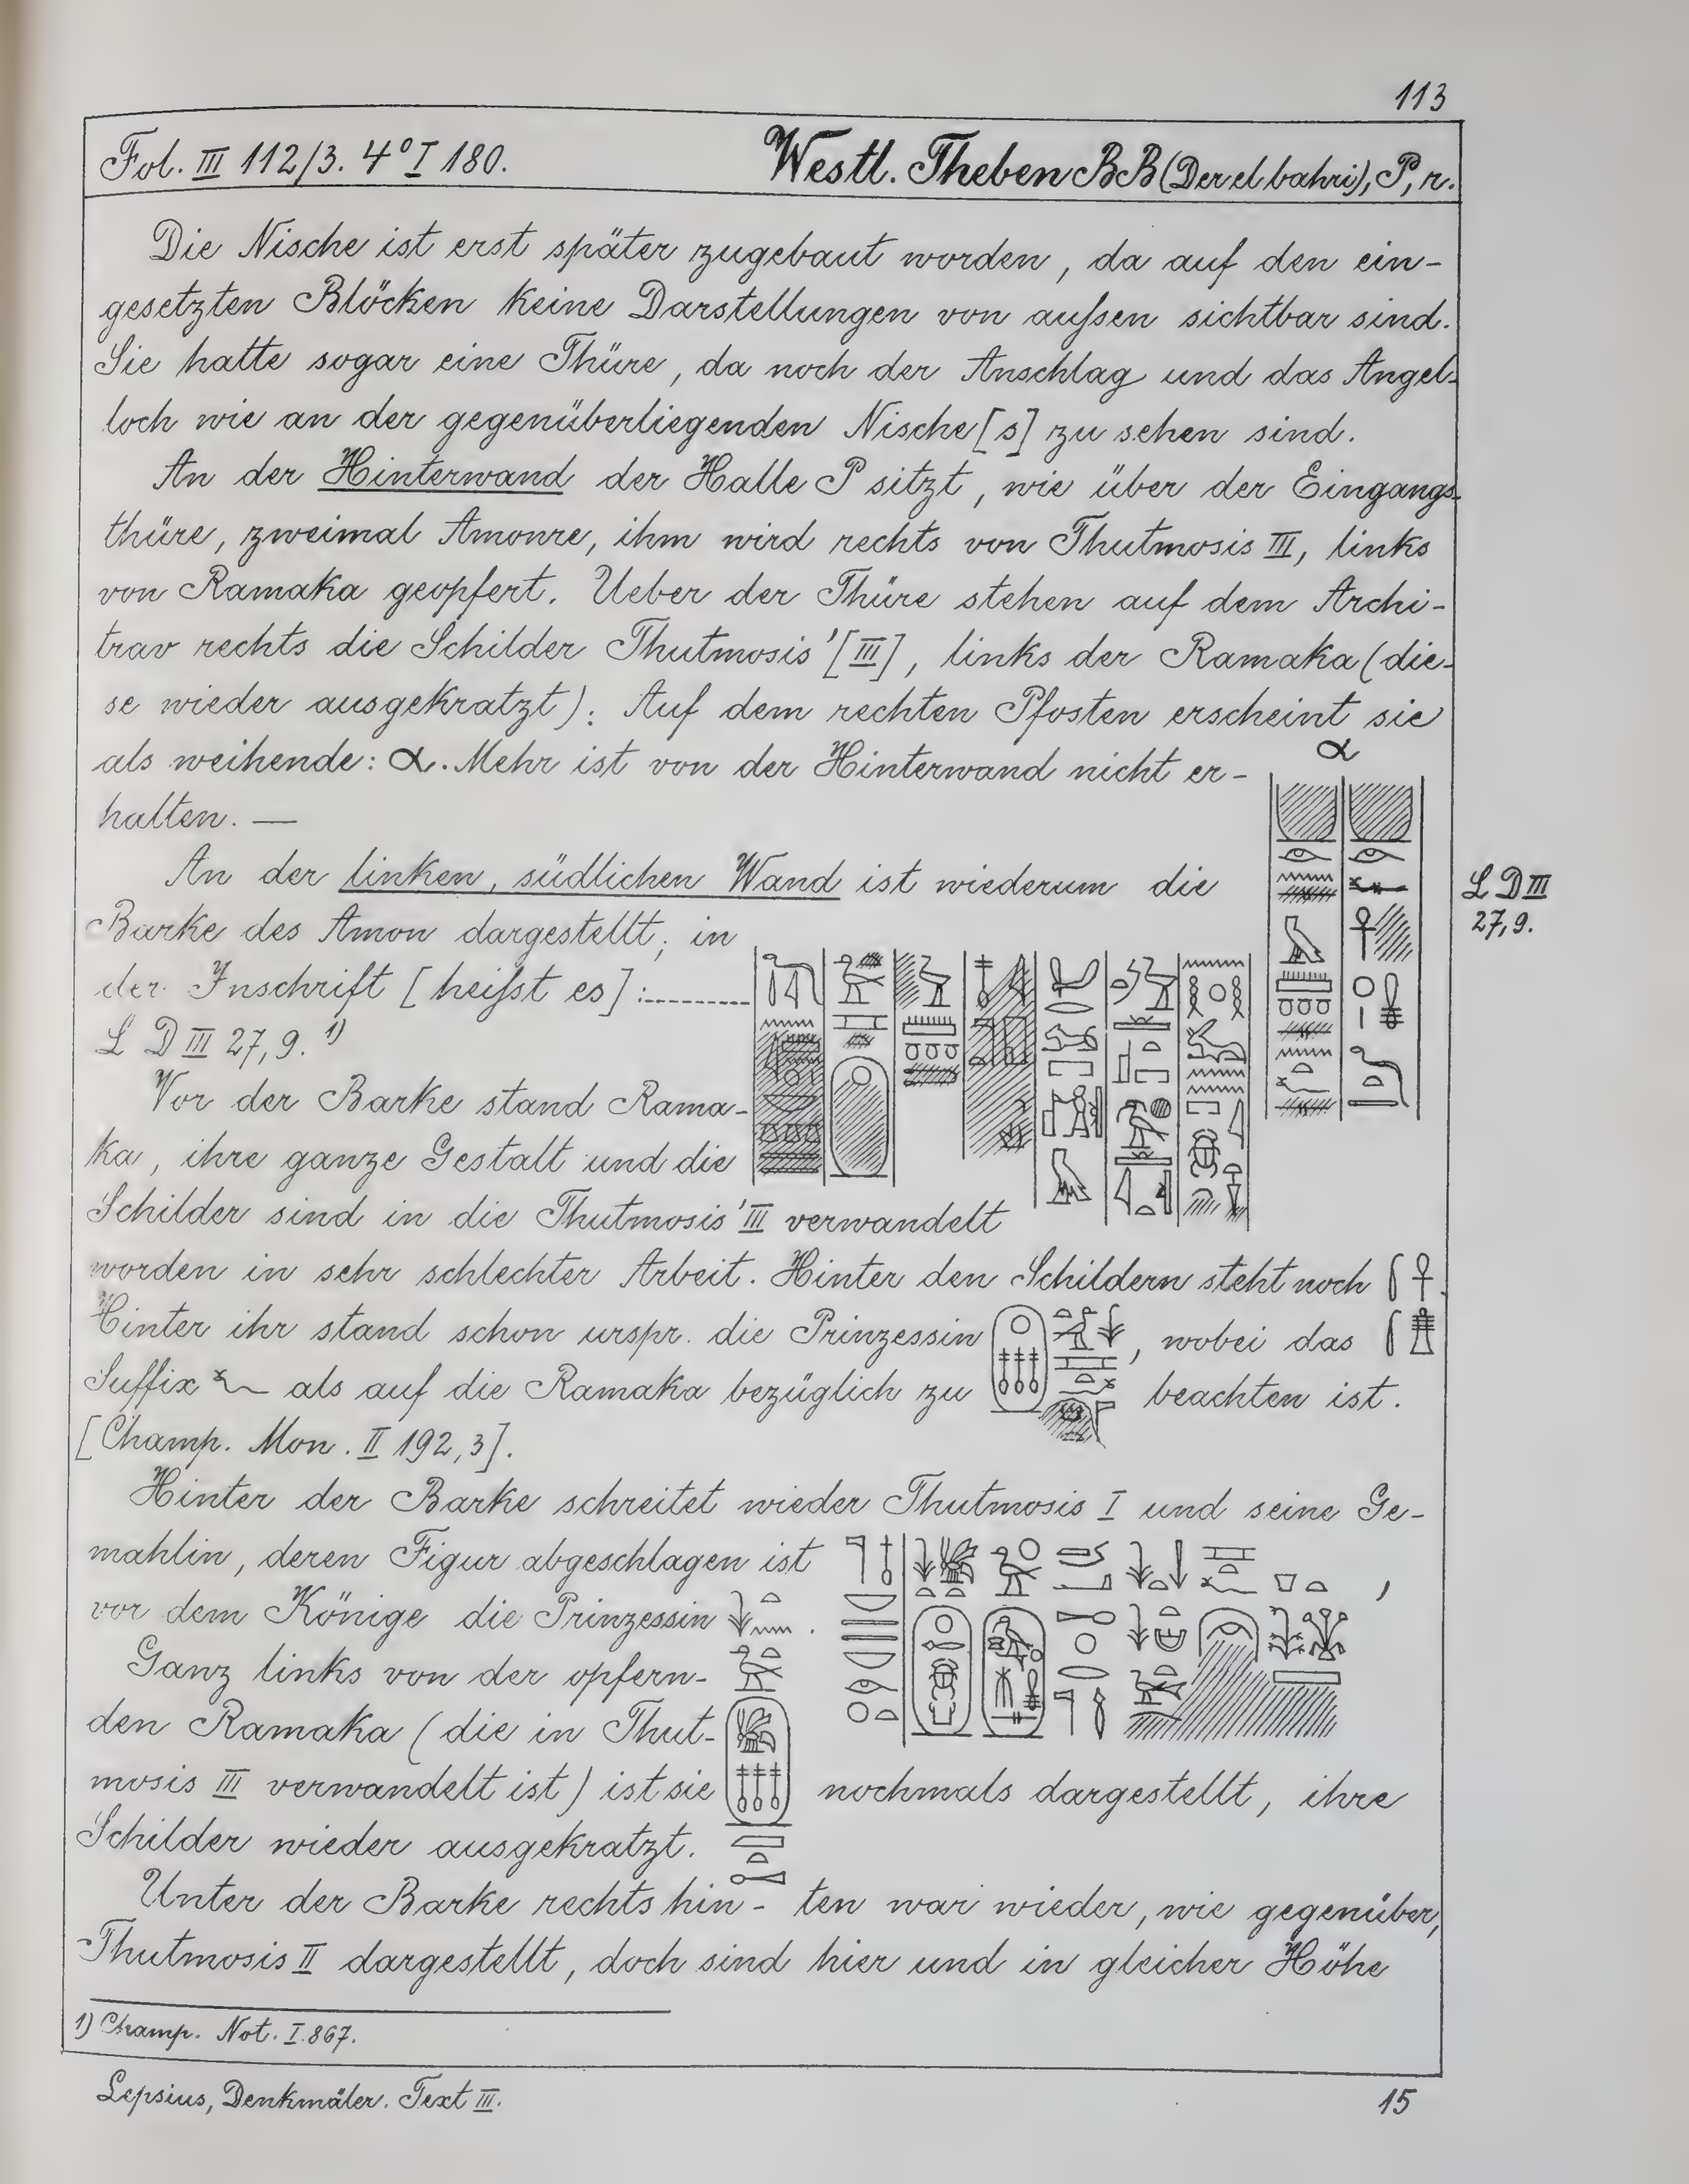 113
Fol. III 112/3. 4° I 180. Westl. Theben BB (Der el bahri), P, r.
Die Nische ist erst später zugebaut worden, da auf den ein-
gesetzten Blöcken keine Darstellungen von außen sichtbar sind.
Sie hatte sogar eine Thüre, da noch der Anschlag und das Angel-
loch wie an der gegenüberliegenden Nische [s] zu sehen sind.
An der Hinterwand der Halle P sitzt, wie über der Eingangs-
thüre, zweimal Amonre, ihm wird rechts von Thutmosis III, links
von Ramaka geopfert. Ueber der Thüre stehen auf dem Archi-
trav rechts die Schilder Thutmosis' [III], links der Ramaka (die-
se wieder ausgekratzt). Auf dem rechten Pfosten erscheint sie
als weihende: α. Mehr ist von der Hinterwand nicht er-
α
halten. —
An der linken, südlichen Wand ist wiederum die
L D III
27,9.
Barke des Amon dargestellt; in
der Inschrift [heißt es]:
L D III 27,9. 1)
Vor der Barke stand Rama-
ka, ihre ganze Gestalt und die
Schilder sind in die Thutmosis' III verwandelt
worden in sehr schlechter Arbeit. Hinter den Schildern steht noch
Hinter ihr stand schon urspr. die Prinzessin , wobei das
Suffix als auf die Ramaka bezüglich zu beachten ist.
[Champ. Mon. II 192,3].
Hinter der Barke schreitet wieder Thutmosis I und seine Ge-
mahlin, deren Figur abgeschlagen ist ,
vor dem Könige die Prinzessin .
Ganz links von der opfern-
den Ramaka (die in Thut-
mosis III verwandelt ist) ist sie nochmals dargestellt, ihre
Schilder wieder ausgekratzt.
Unter der Barke rechts hin- ten war wieder, wie gegenüber,
Thutmosis II dargestellt, doch sind hier und in gleicher Höhe
1) Champ. Not. I. 867.
Lepsius, Denkmäler. Text III. 15